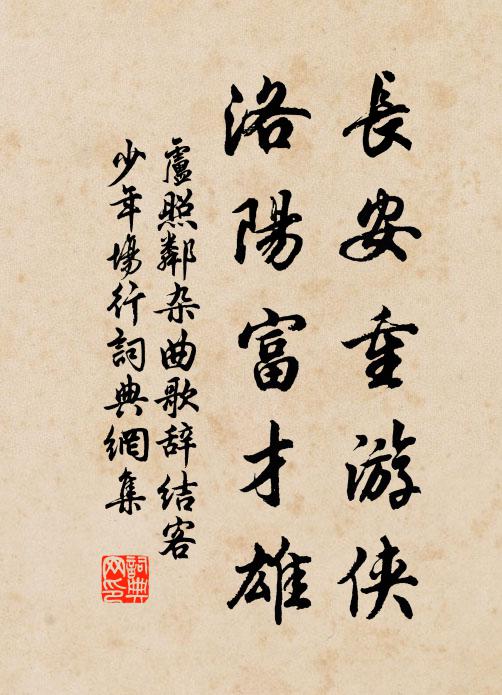 長安重游侠
洛陽富才雄
盧照鄰杂曲歌辞结客
少年場行詞典網集
詞典
网印